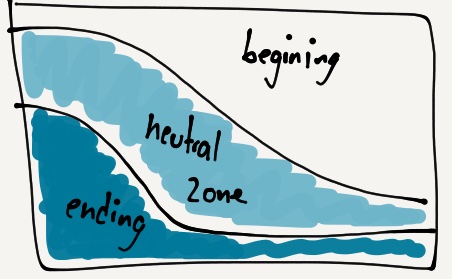 begining
neutral
zone
ending